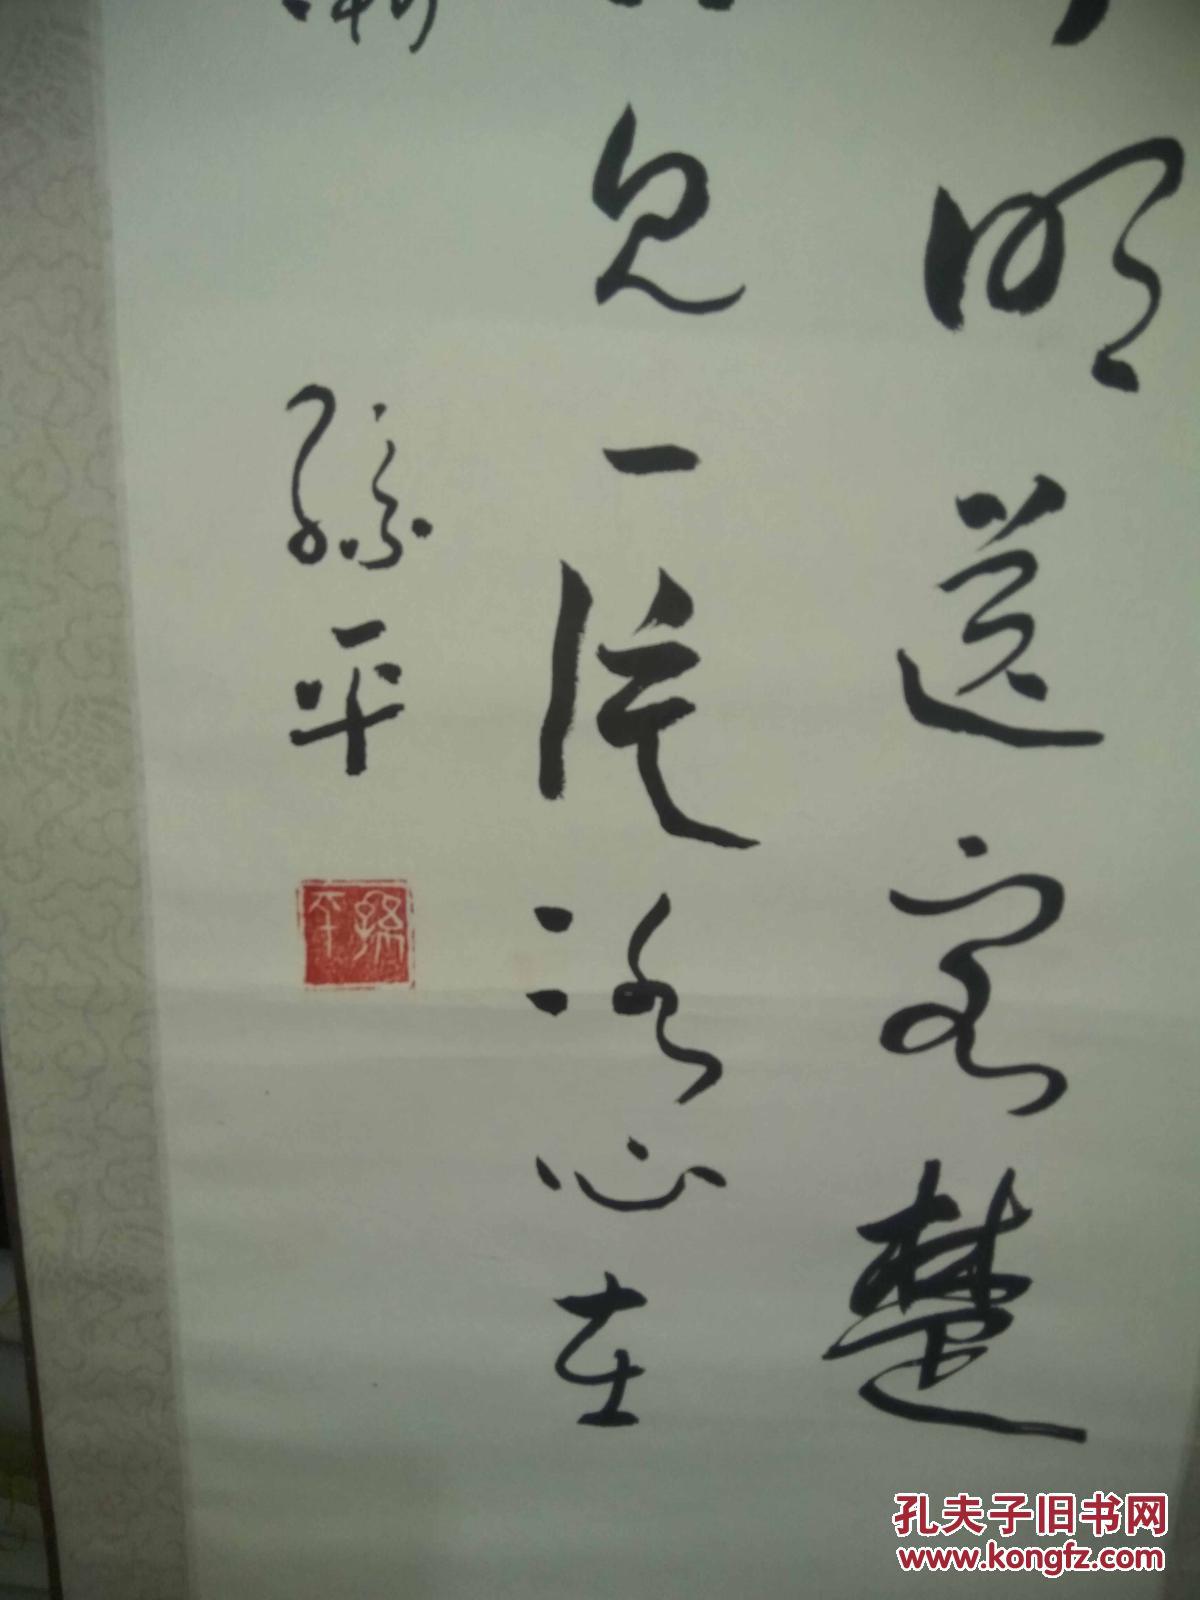 明送客楚
见一片冰心在
孙平
孙平
孔夫子旧书网
www.kongfz.com